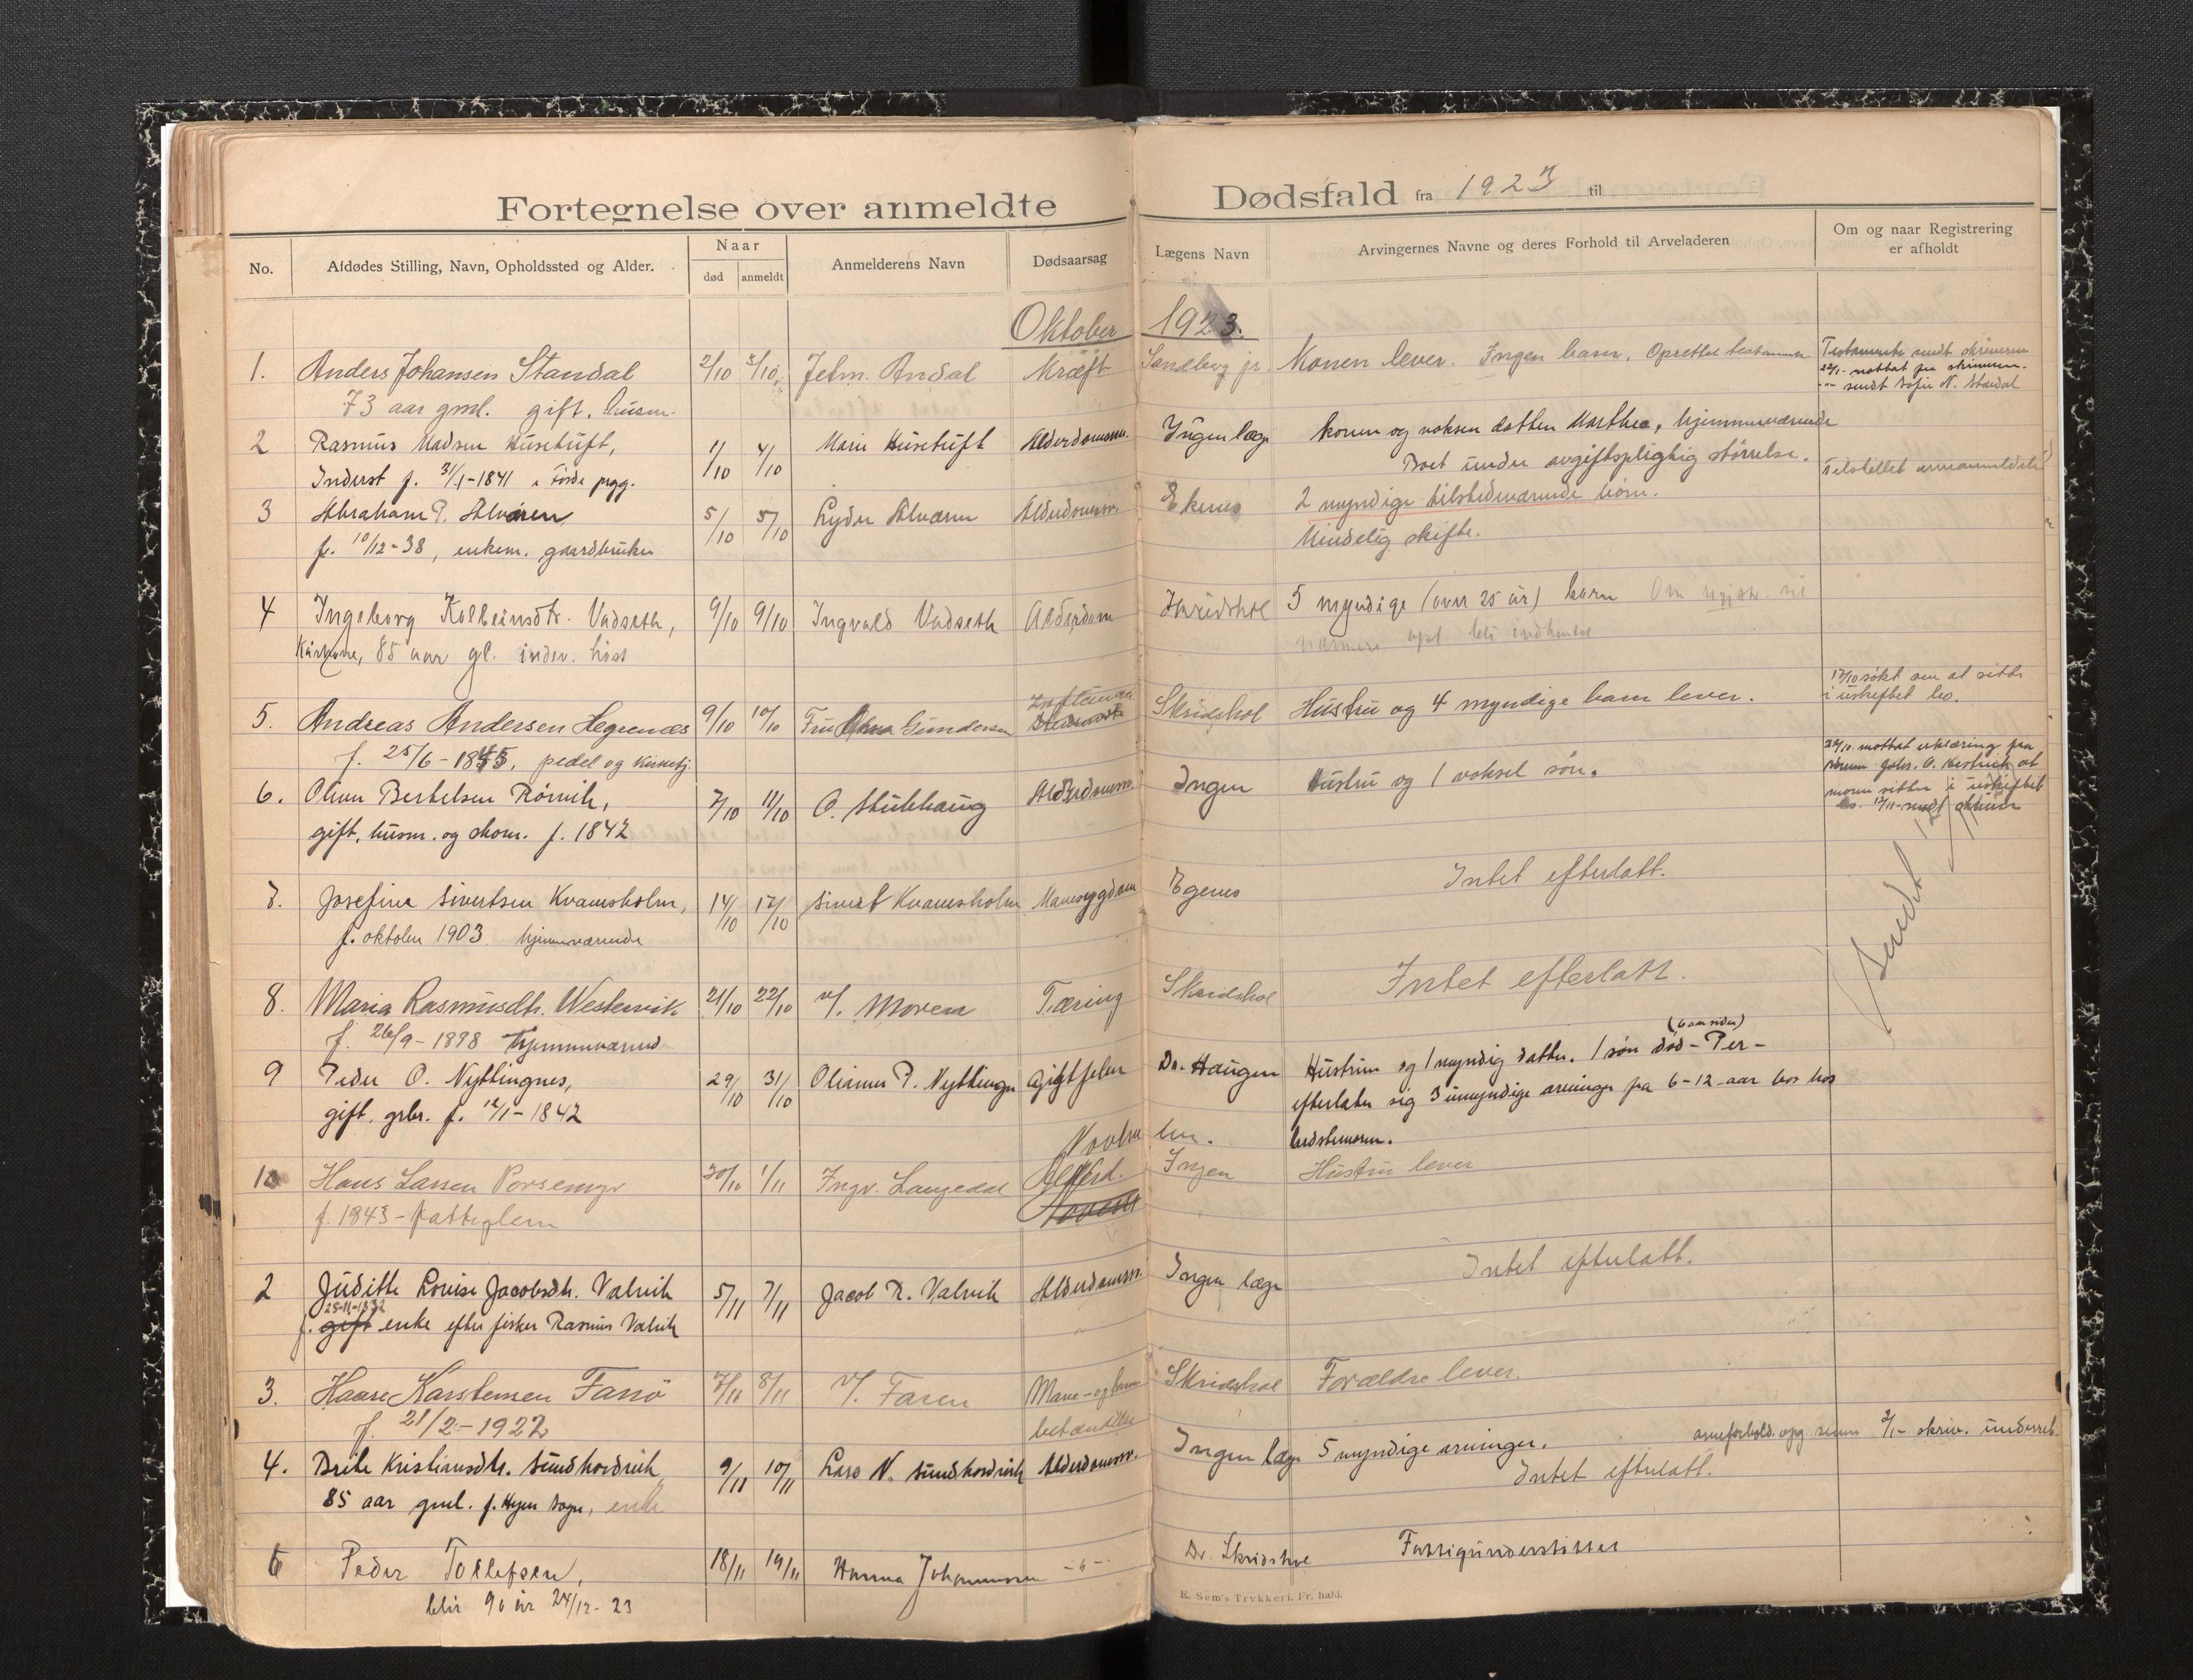 Fortegnelse over anmeldte Dødsfald fra 1923 til
No. Afdødes Stilling, Navn, Opholdssted og Alder. Naar død anmeldt Anmelderens Navn Dødsaarsag Lægens Navn Arvingernes Navne og deres Forhold til Arveladeren Om og naar Registrering er afholdt
Oktober 1923.
1. Anders Johansen Standal 2/10 3/10 Jetm. Andal Kræft Sandberg jr. Konen lever. Ingen barn. Oprettet testamente Testamente sendt skriveren
22/1- mottat fra skriveren.
73 aar gml. gift. husm. -"- sendt Sofie N. Standal
2 Rasmus Madsen Husetuft, 1/10 4/10 Marie Husetuft Alderdomssv. Ingen læge konen og voksen datter Marthea, hjemmeværende
Inderst f. 31/1-1841 i Førde prgj. Boet under avgiftspligtig størrelse.
3 Abraham P. Alværen 5/10 5/10 Lyder Alværen Alderdomssv. Ekenes 2 myndige tilstedeværende børn.
f. 10/12-38, enkem. gaardbruker Mindelig skifte.
4 Ingeborg Kolbeinsdtr. Vadseth, 9/10 9/10 Ingvald Vadseth Alderdom Skridshol 5 myndige (over 25 år) barn Om
85 aar gl. nærmere opl. bli indhentet
5. Andreas Andersen Hegrenæs 9/10 10/10 Fru Gundersen Skridshol Hustru og 4 myndige barn lever. 17/10 søkt om at sitte
i uskiftet bo.
f. 25/6-1845, pedel og kirketj.
6. Oliver Bertelsen Rørvik, 7/10 12/10 O. Stubhaug Alderdomssv. Ingen Hustru og 1 voksel søn. mottat erklæring fra
at
moren sitter i uskiftet
bo. 17/11 sendt
gift, husm. og skom. f. 1842
7. Josefine Sivertsen Kvamesholm, 14/10 17/10 Sivert Kvamesholm Mavesygdom Egenes Intet efterlatt.
f. oktober 1903 hjemmeværende
Sendt
8. Maria Rasmusdtr. Westervik 21/10 22/10 v/. Moren Tæring Skridshol Intet efterlatt.
f. 26/9-1898 hjemmeværend
9 Peder O. Nyttingnes, 29/10 31/10 Olianna P. Nyttingn Gigtfeber Dr. Haugen Hustru og 1 myndig datter. 1 søn død - Per -
gift, grbr. f. 12/1-1842 efterlater sig 3 umyndige arvinger fra 6-12 aar hos
bedstemoren.
November.
10 Hans Larsen 30/10 1/11 Ingv. Langedal Alderd. Ingen Hustru lever
f. 1843 - fattiglem
2 Judithe Lovise Jacobsdtr. Valvik 5/11 7/11 Jacob R. Valvik Alderdomssv. Ingen læge Intet efterlatt.
25-11-1832
f. gift enke efter fisker Rasmus Valvik
3. Kaare Karstensen Fanø 7/11 8/11 v/. Faren Mave- og
betændelse Skridshol Forældre lever.
f. 21/2-1922
4. Brite Kristiansdtr. Sundhordvik 9/11 10/11 Lars N. Sundhordvik Alderdomssv. Ingen læge 5 myndige arvinger. arveforhold. opg. 2/1- skriv. underret.
85 aar gml. f. Hyen Sogn, enke Intet efterlatt.
6 Peder Tollefsen, 18/11 19/11 Hanna Johannessen -"- Dr. Skridshol Fattigunderstøttet
blir 90 år 24/12-23
E. Sem's Trykkeri, Fr. hald.